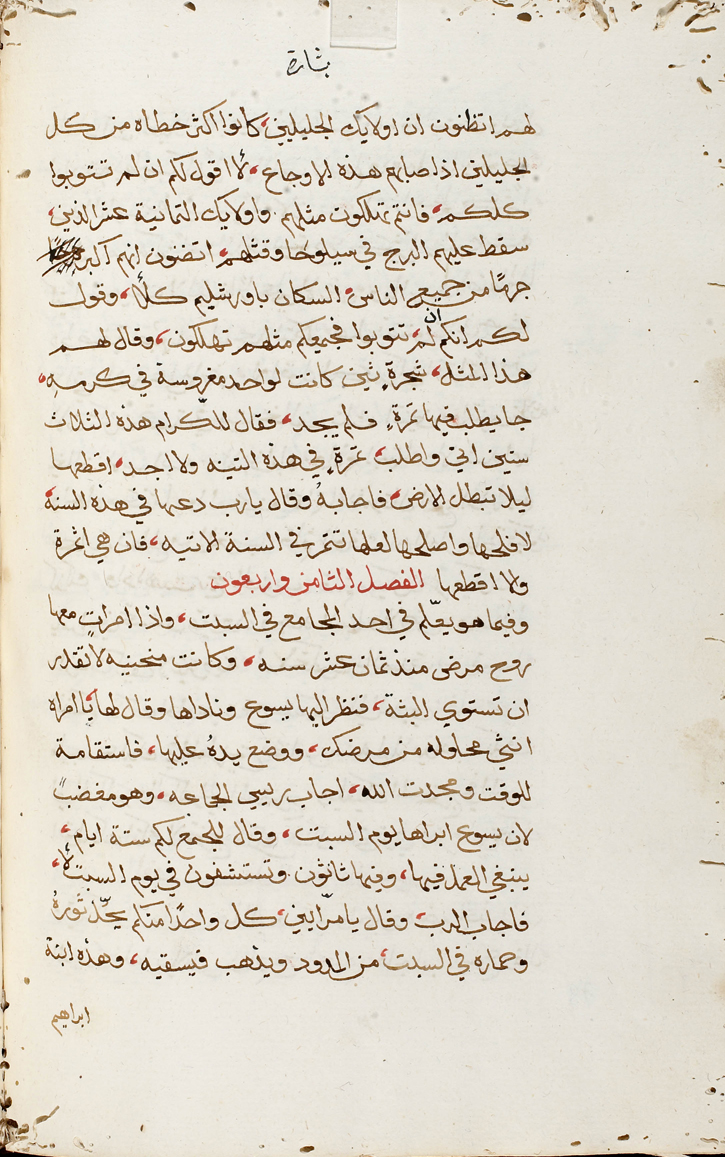 بشارة
لهم اتظنون ان اولايك الجليليين كانوا اكثر خطاه من كل
الجليليين اذ اصابهم هذه الاوجاع، لا اقول لكم ان لم تتوبوا
كلكم، فانتم تهلكون مثلهم. واولايك الثمانية عشر الذين،
سقط عليهم البرج في سيلوحا وقتلهم، اتضنون انهم اكبر
جرمًا من جميع الناس، السكان باورشليم كلا، وقول
لكم انكم ان لم، تتوبوا فجميعكم مثلهم تهلكون، وقال لهم
هذا المثل، شجرة تين كانت لواحد مغروسة في كرمهِ،
جا يطلب فيها ثمرة، فلم يجد، فقال للكرام هذه الثلاث
سنين اتي واطلب ثمرة في هذه التينه ولا اجد، اقطعها
ليلا تبطل الارض، فاجابهُ وقال يارب دعها في هذه السنة
لافلحها واصلحها لعلها تثمر في السنة الاتيه، فان هي اثمرة
ولا اقطعها الفصل الثامن واربعون
وفيما هو يعلّم في احد المجامع في السبت، واذا امراتٍ معها
روح مرض منذ ثمان عشر سنه، وكانت منحنيه لا تقدر
ان تستوي البثة، فنظر اليها يسوع وناداها وقال لها يا امراه
انتي محاوله من مرضك، ووضع يدهُ عليها، فاستقامة
للوقت ومجدت الله، اجاب ريسي الجماعه، وهو مغضبً
لان يسوع ابراها يوم السبت، وقال للجمع لكم ستة ايام،
ينبغي العمل فيها، وفيها تاتون. وتستشفون في يوم السبت لا،
فاجاب الرب، وقال يا مرّايين، كل واحدًا منكم يحّل ثورهُ
وحماره في السبت، من المدود ويذهب فيسقيه، وهذه ابنة
ابراهيم